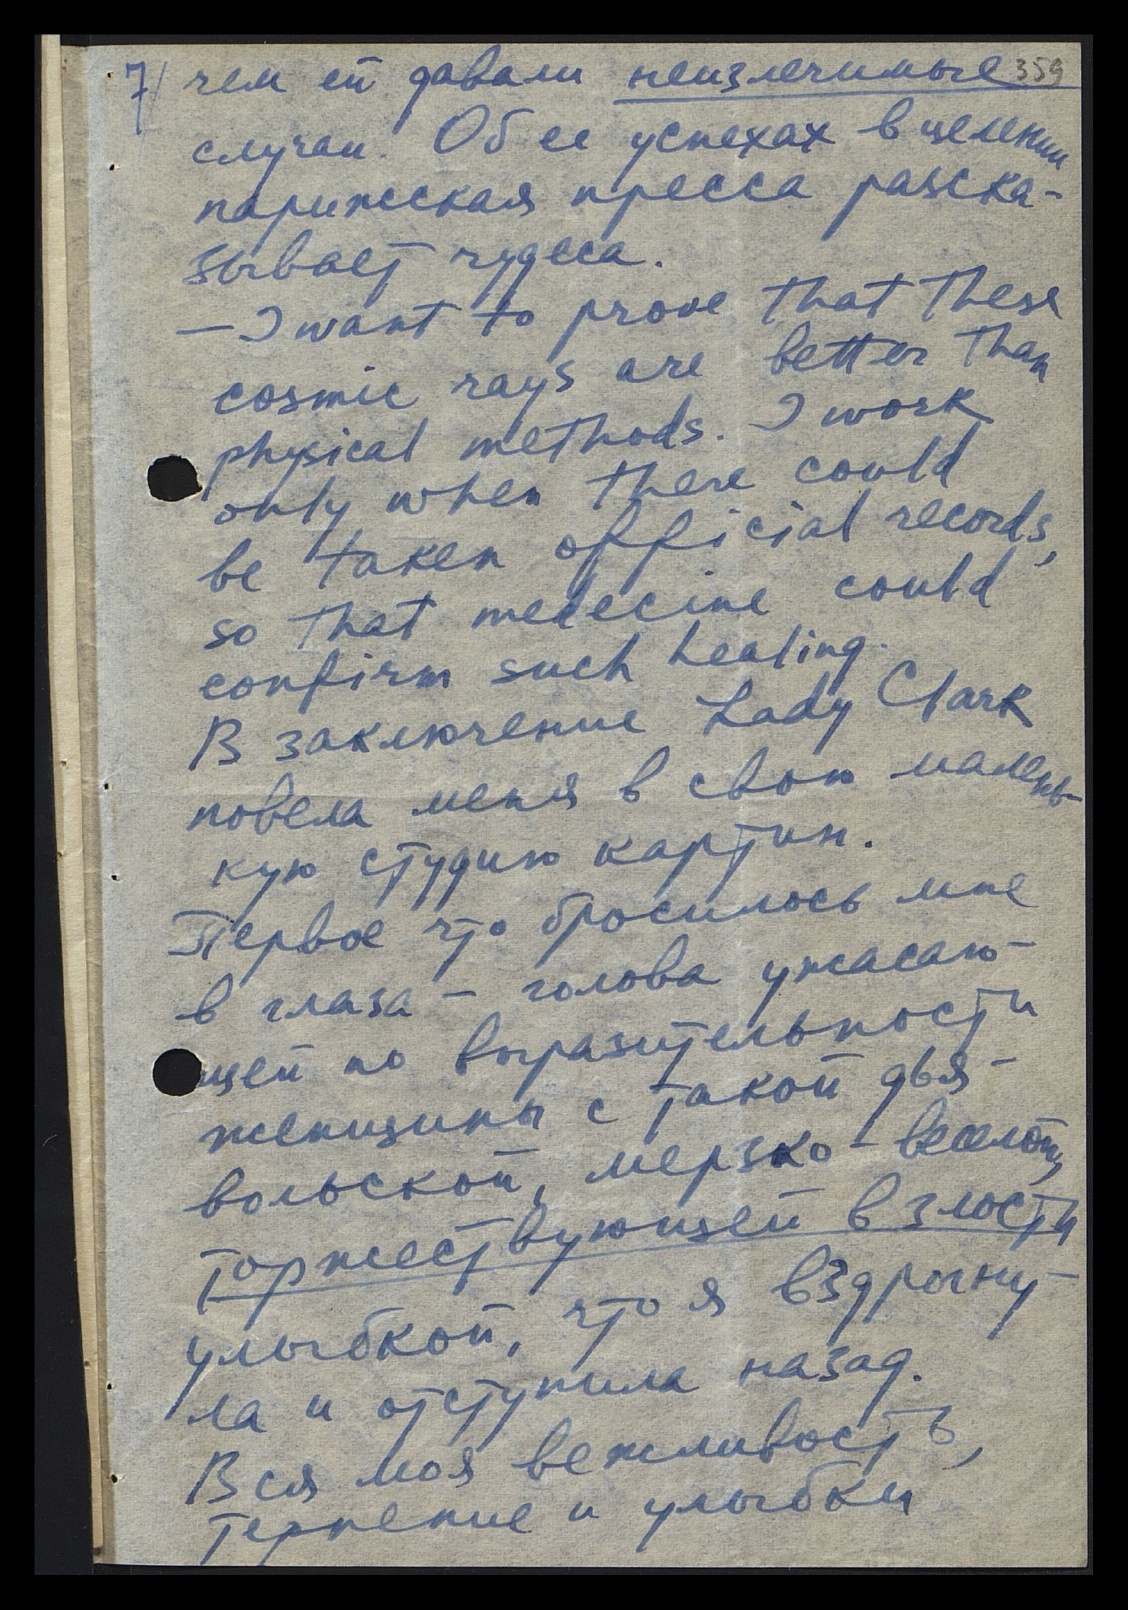 7/ чем ей давали неизлечимые 359
случаи. Об ее успехах в целении
парижская пресса разска-
зывает чудеса.
— I want to prove that these
cosmic rays are better than
physical methods. I work
only when there could
be taken official records,
so that medecine could
confirm such healing.
В заключение Lady Clark
повела меня в свою малень-
кую студию картин.
Первое что бросилось мне
в глаза – голова ужасаю-
щей по выразительности
женщины с такой дья-
вольской, мерзко-веселой,
торжествующей в злости
улыбкой, что я вздрогну-
ла и отступила назад.
Вся моя вежливость,
терпение и улыбки